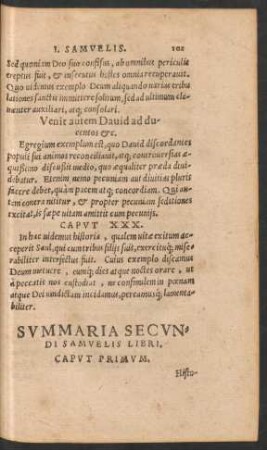 I. SAMVELIS. 101
Sed quoniam Deo suo confisus, ab omnibus periculis
ereptus fuit, & insecutus hostes omnia recuperauit.
Quo uidemus exemplo Deum aliquando uarias tribu
lationes sanctis immittere solitum, sed ad ultimum cle
menter auxiliari, atq; consolari.
Venit autem Dauid ad du
centos &c.
Egregium exemplum est, quo Dauid discordantes
populi sui animos reconciliauit, atq; controuersias
æquissimo dissoluit medio, quo æqualiter præda diui
debatur. Etenim nemo pecuniam aut diuitias pluris
facere debet, quàm pacem atq; concordiam. Qui au-
tem contra nititur, & propter pecuniam seditiones
excitat, is sæpe uitam amittit cum pecunijs.
CAPVT XXX.
In hac uidemus historia, qualem uitæ exitum ac-
ceperit Saul, qui cum tribus filijs suis, exercituq; mise
rabiliter interfectus fuit. Cuius exemplo discamus
Deum metuere, eumq; dies atque noctes orare, ut
à peccatis nos custodiat, ne consimilem in pœnam
atque Dei uindictam incidamus, pereamusq; lamenta
biliter.
SVMMARIA SECVN-
DI SAMVELIS LIBRI.
CAPVT PRIMVM.
Histo-